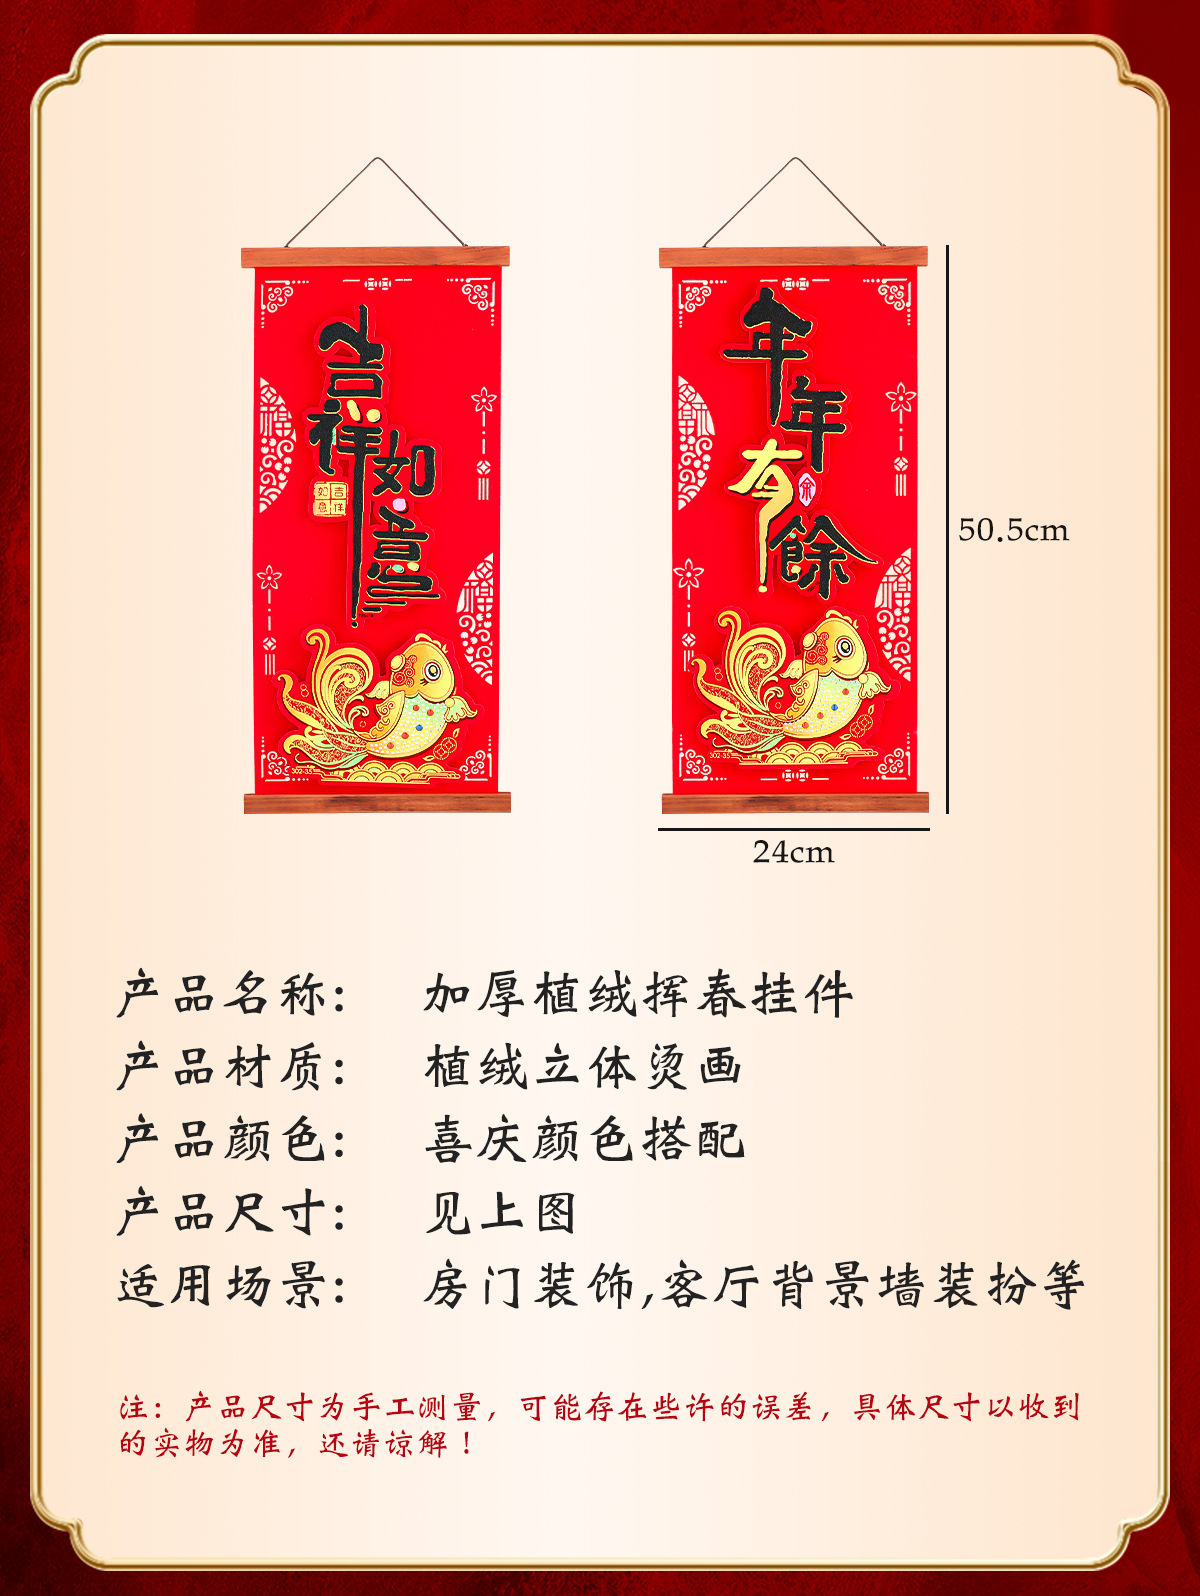 吉祥如意
吉祥如意
年年有餘
余
福
福
福
福
302-35
302-35
50.5cm
24cm
产品名称: 加厚植绒挥春挂件
产品材质: 植绒立体烫画
产品颜色: 喜庆颜色搭配
产品尺寸: 见上图
适用场景: 房门装饰,客厅背景墙装扮等
注：产品尺寸为手工测量，可能存在些许的误差，具体尺寸以收到
的实物为准，还请谅解！